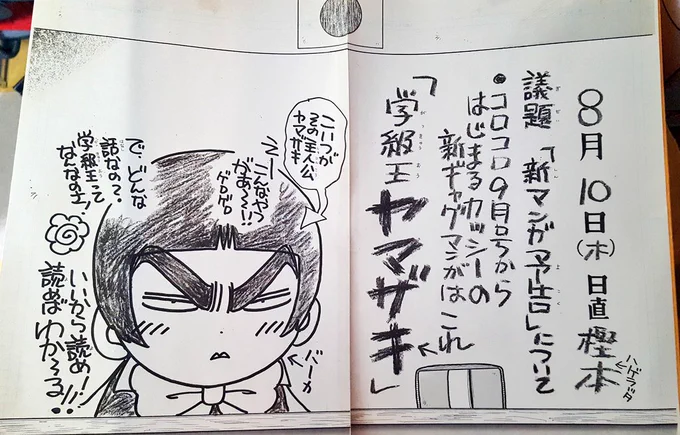 8月10日(木)日直 樫本
ハゲラッタ
議題「新マンガ予告」について
●コロコロ9月号から
はじまるカッシーの
新ギャグマンガはこれ
「学級王
ヤマザキ」
こいつが
その主人公
ヤマザキ
えーこんなやつ
があ〜〜!!
ゲロゲロ
で、どんな
話なの?
学級王って
なんなのさ!
バーカ
いいから読め!
読めばわか〜る!!